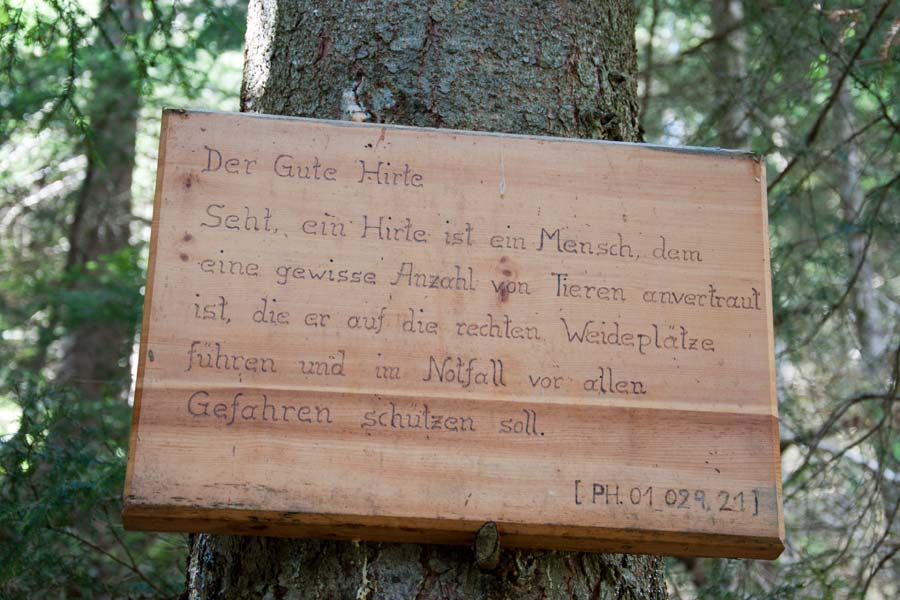 Der Gute Hirte
Seht, ein Hirte ist ein Mensch, dem
eine gewisse Anzahl von Tieren anvertraut
ist, die er auf die rechten Weideplätze
führen und im Notfall vor allen
Gefahren schützen soll.
[PH.01_029,21]